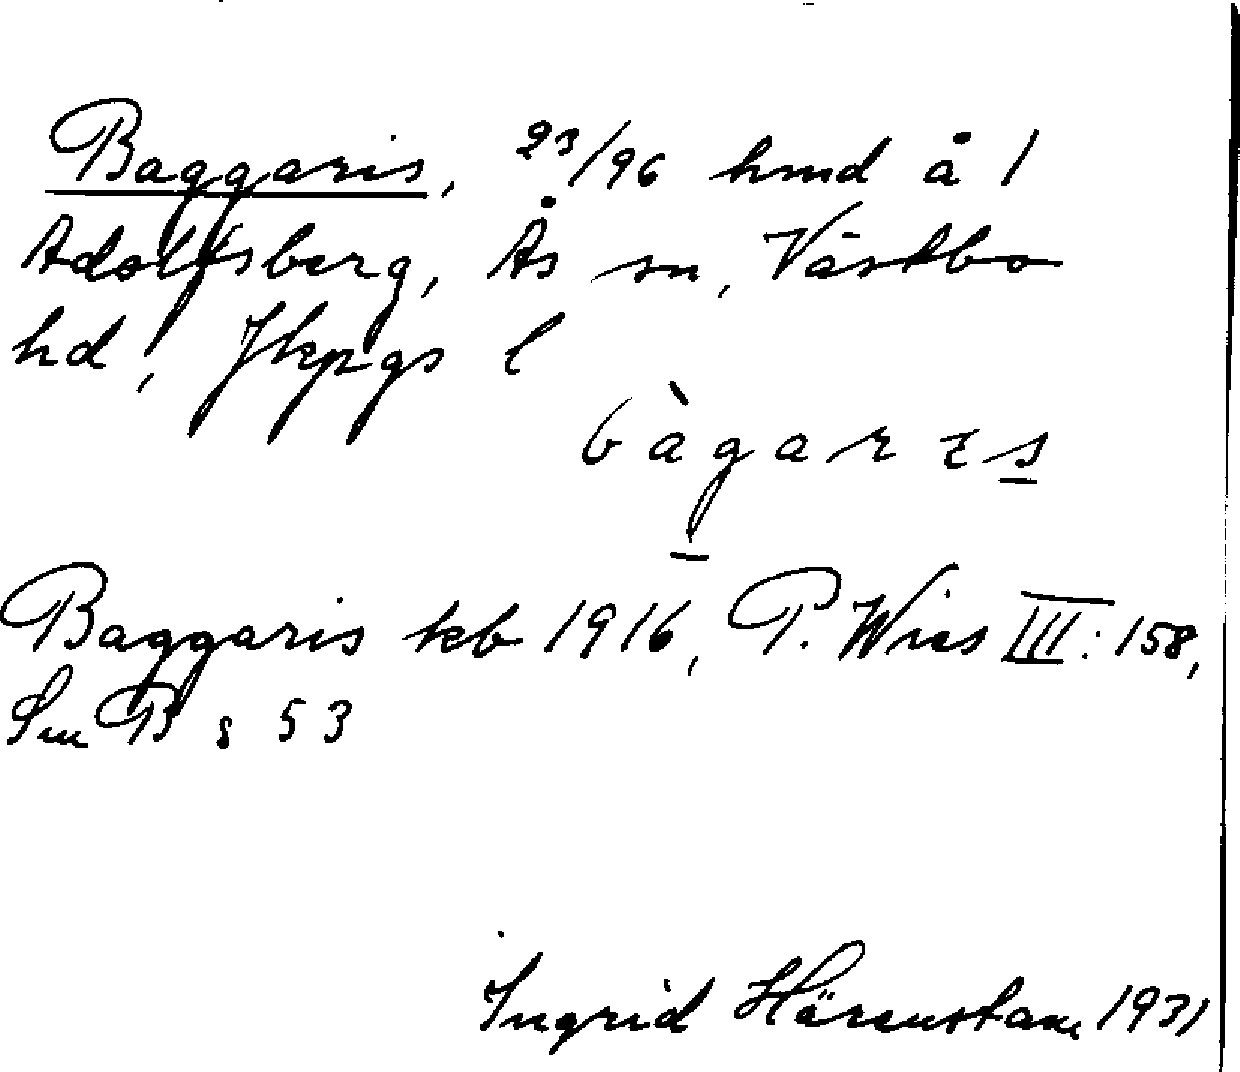 Baggaris, 23/96 hmd å 1
Adolfsberg, Ås sn, Västbo
hd, Jkpgs l
bàgarɩs
Baggaris kb 1916, P. Wies III: 158,
Sm B s 53
Ingrid Härenstam 1931